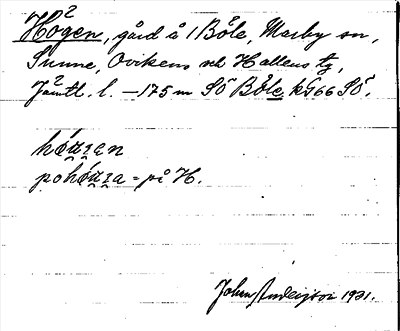 Högen, gård å 1 Böle, Marby sn,
Sunne, Ovikens och Hallens tg,
Jämtl. l. — 175 m SÖ Böle, kg 66 SÖ.
på H.
John Andersson 1931.